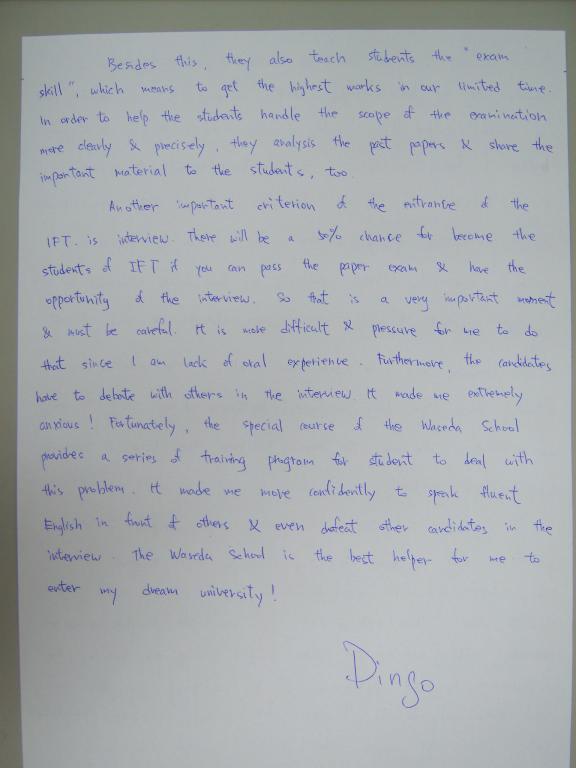 Besides this, they also teach students the "exam
skill", which means to get the highest marks in our limited time.
In order to help the students handle the scope of the examination
more clearly & precisely, they analysis the past papers & share the
important material to the students, too.
Another important criterion of the entrance of the
IFT. is interview. There will be a 50% chance for become the
students of IFT if you can pass the paper exam & have the
opportunity of the interview. So that is a very important moment
& must be careful. It is more difficult & pressure for me to do
that since I am lack of oral experience. Furthermore, the candidates
have to debate with others in the interview. It made me extremely
anxious! Fortunately, the special course of the Waseda School
provides a series of training program for student to deal with
this problem. It made me more confidently to speak fluent
English in front of others & even defeat other candidates in the
interview. The Waseda School is the best helper for me to
enter my dream university!
Dingo